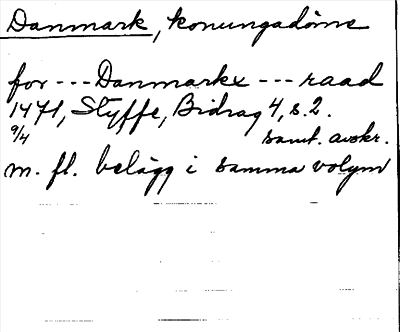 Danmark, konungadöme
for --- Danmarkx --- raad
1471, Styffe, Bidrag 4, s. 2.
9/4 samt. avskr.
m. fl. belägg i samma volym